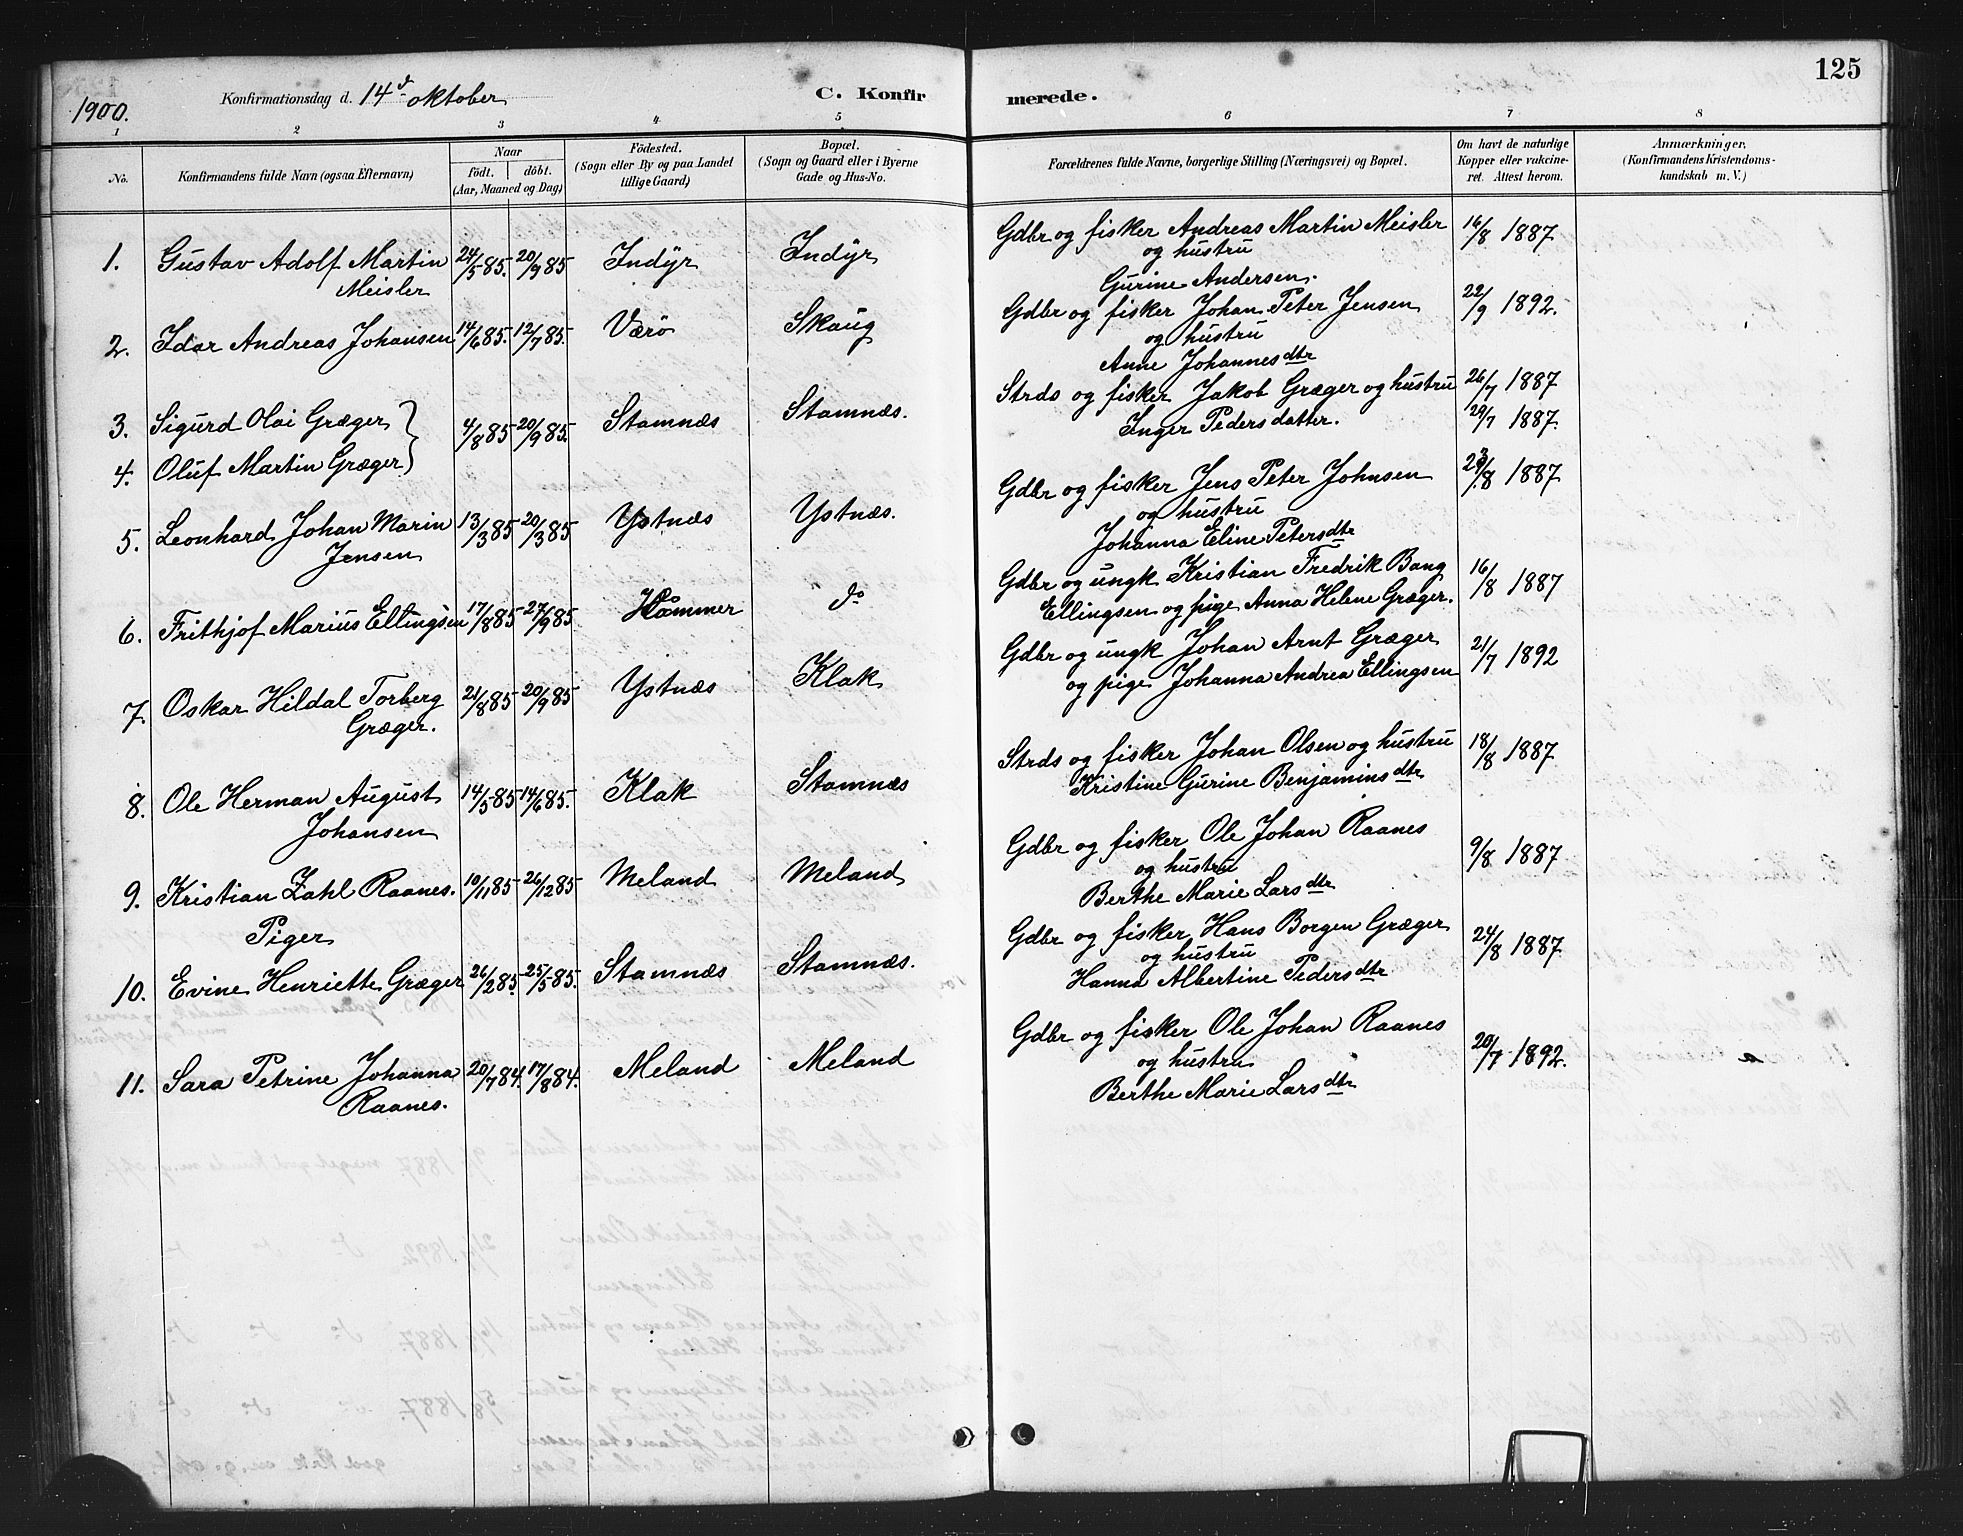 1900. Konfirmationsdag d. 14d oktober C. Konfirmerede. 125
1 2 3 4 5 6 7 8
No. Konfirmandens fulde Navn (ogsaa Efternavn)
Naar
födt. döbt.
(Aar, Maaned og Dag)
Födested.
(Sogn eller By og paa Landet
tillige Gaard)
Bopæl.
(Sogn og Gaard eller i Byerne
Gade og Hus-No.
Forældrenes fulde Navne, borgerlige Stilling (Næringsvei) og Bopæl.
Om havt de naturlige
Kopper eller vakcine-
ret. Attest herom.
Anmærkninger,
(Konfirmandens Kristendoms-
kundskab m. V.)
1. Gustav Adolf Martin 24/5 85. 20/9 85 Indyr Indyr
Meisler
Gdbr og fisker Andreas Martin Meisler 16/8 1887
og hustru
Gurine Andersen.
2. Idar Andreas Johansen 14/6 85. 12/7 85. Værö Skaug
Gdbr og fisker Johan Peter Jensen 22/9 1892.
og hustru
Anne Johannesdtr
3. Sigurd Olai Græger 4/8 85 20/9 85. Stamnæs Stamnæs.
4. Oluf Martin Græger
Strds og fisker Jakob Græger og hustru 26/7 1887
Inger Pedersdatter. 29/7 1887.
5. Leonhard Johan Marin 13/3 85 20/3 85 Ystnæs Ystnæs.
Jensen
Gdbr og fisker Jens Peter Johnsen 23/8 1887
og hustru
Johanna Eline Petersdtr
6. Frithjof Marius Ellingsen 17/8 85 27/9 85 Hammer do
Gdbr og ungk Kristian Fredrik Bang 16/8 1887
Ellingsen og pige Anna Helene Græger.
7. Oskar Hildal Torberg 21/8 85 20/9 85 Ystnæs Klak
Græger.
Gdbr og ungk Johan Arnt Græger 21/7 1892
og pige Johanna Andrea Ellingsen
8. Ole Herman August 14/5 85 14/6 85. Klak Stamnæs
Johansen
Strds og fisker Johan Olsen og hustru 18/8 1887
Kristine Gurine Benjaminsdtr
9. Kristian Zahl Raanes. 10/11 85 26/12 85 Meland Meland
Gdbr og fisker Ole Johan Raanes 9/8 1887
og hustru
Berthe Marie Larsdtr
Piger
10. Evine Henriette Græger 26/2 85. 25/5 85. Stamnæs Stamnæs.
Gdbr og fisker Hans Borgen Græger 24/8 1887
og hustru
Hanna Albertine Pedersdtr
11. Sara Petrine Johanna 20/7 84. 17/8 84. Meland Meland
Raanes.
Gdbr og fisker Ole Johan Raanes 20/7 1892.
og hustru
Berthe Marie Larsdtr